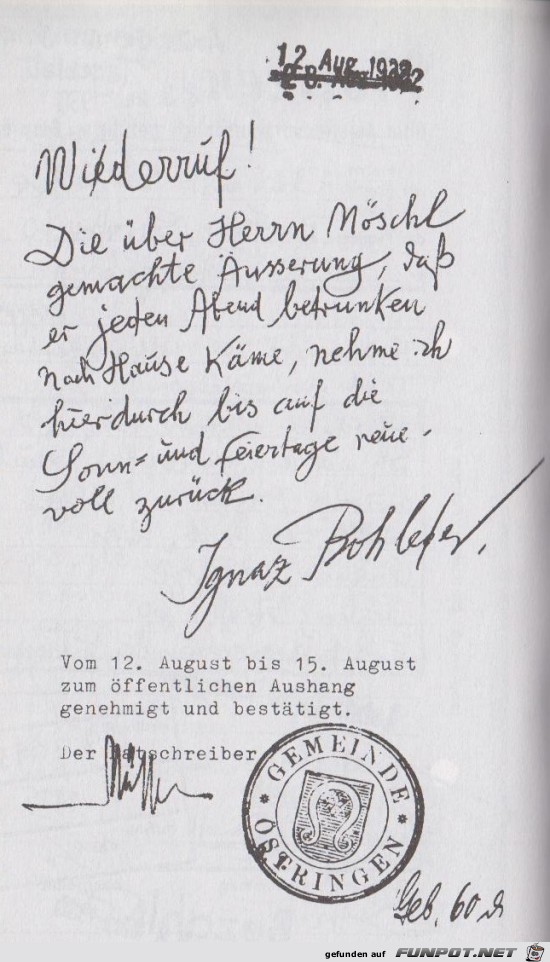 12. Aug. 1932
Wiederruf!
Die über Herrn Möschl
gemachte Äusserung, daß
er jeden Abend betrunken
nach Hause Käme, nehme ich
hierdurch bis auf die
Sonn= und Feiertage reue-
voll zurück.
Ignaz Bohleder,
Vom 12. August bis 15. August
zum öffentlichen Aushang
genehmigt und bestätigt.
Der Ratschreiber
* GEMEINDE *
ÖSTRINGEN
Geb. 60 d
gefunden auf FUNPOT.NET